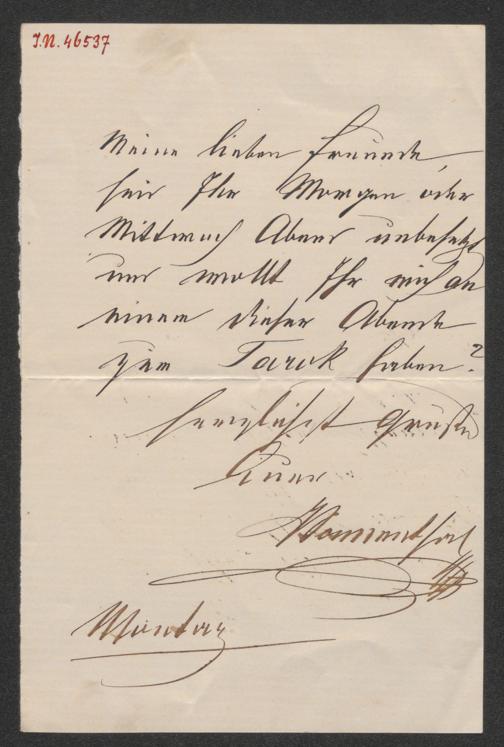 I.N. 46537
Meine lieben Freunde,
seid Ihr Morgen oder
Mittwoch Abend unbesetzt
und wollt Ihr mich an
einem dieser Abende
zum Tarok haben?
Herzlichst grüßt
Euer
Montag